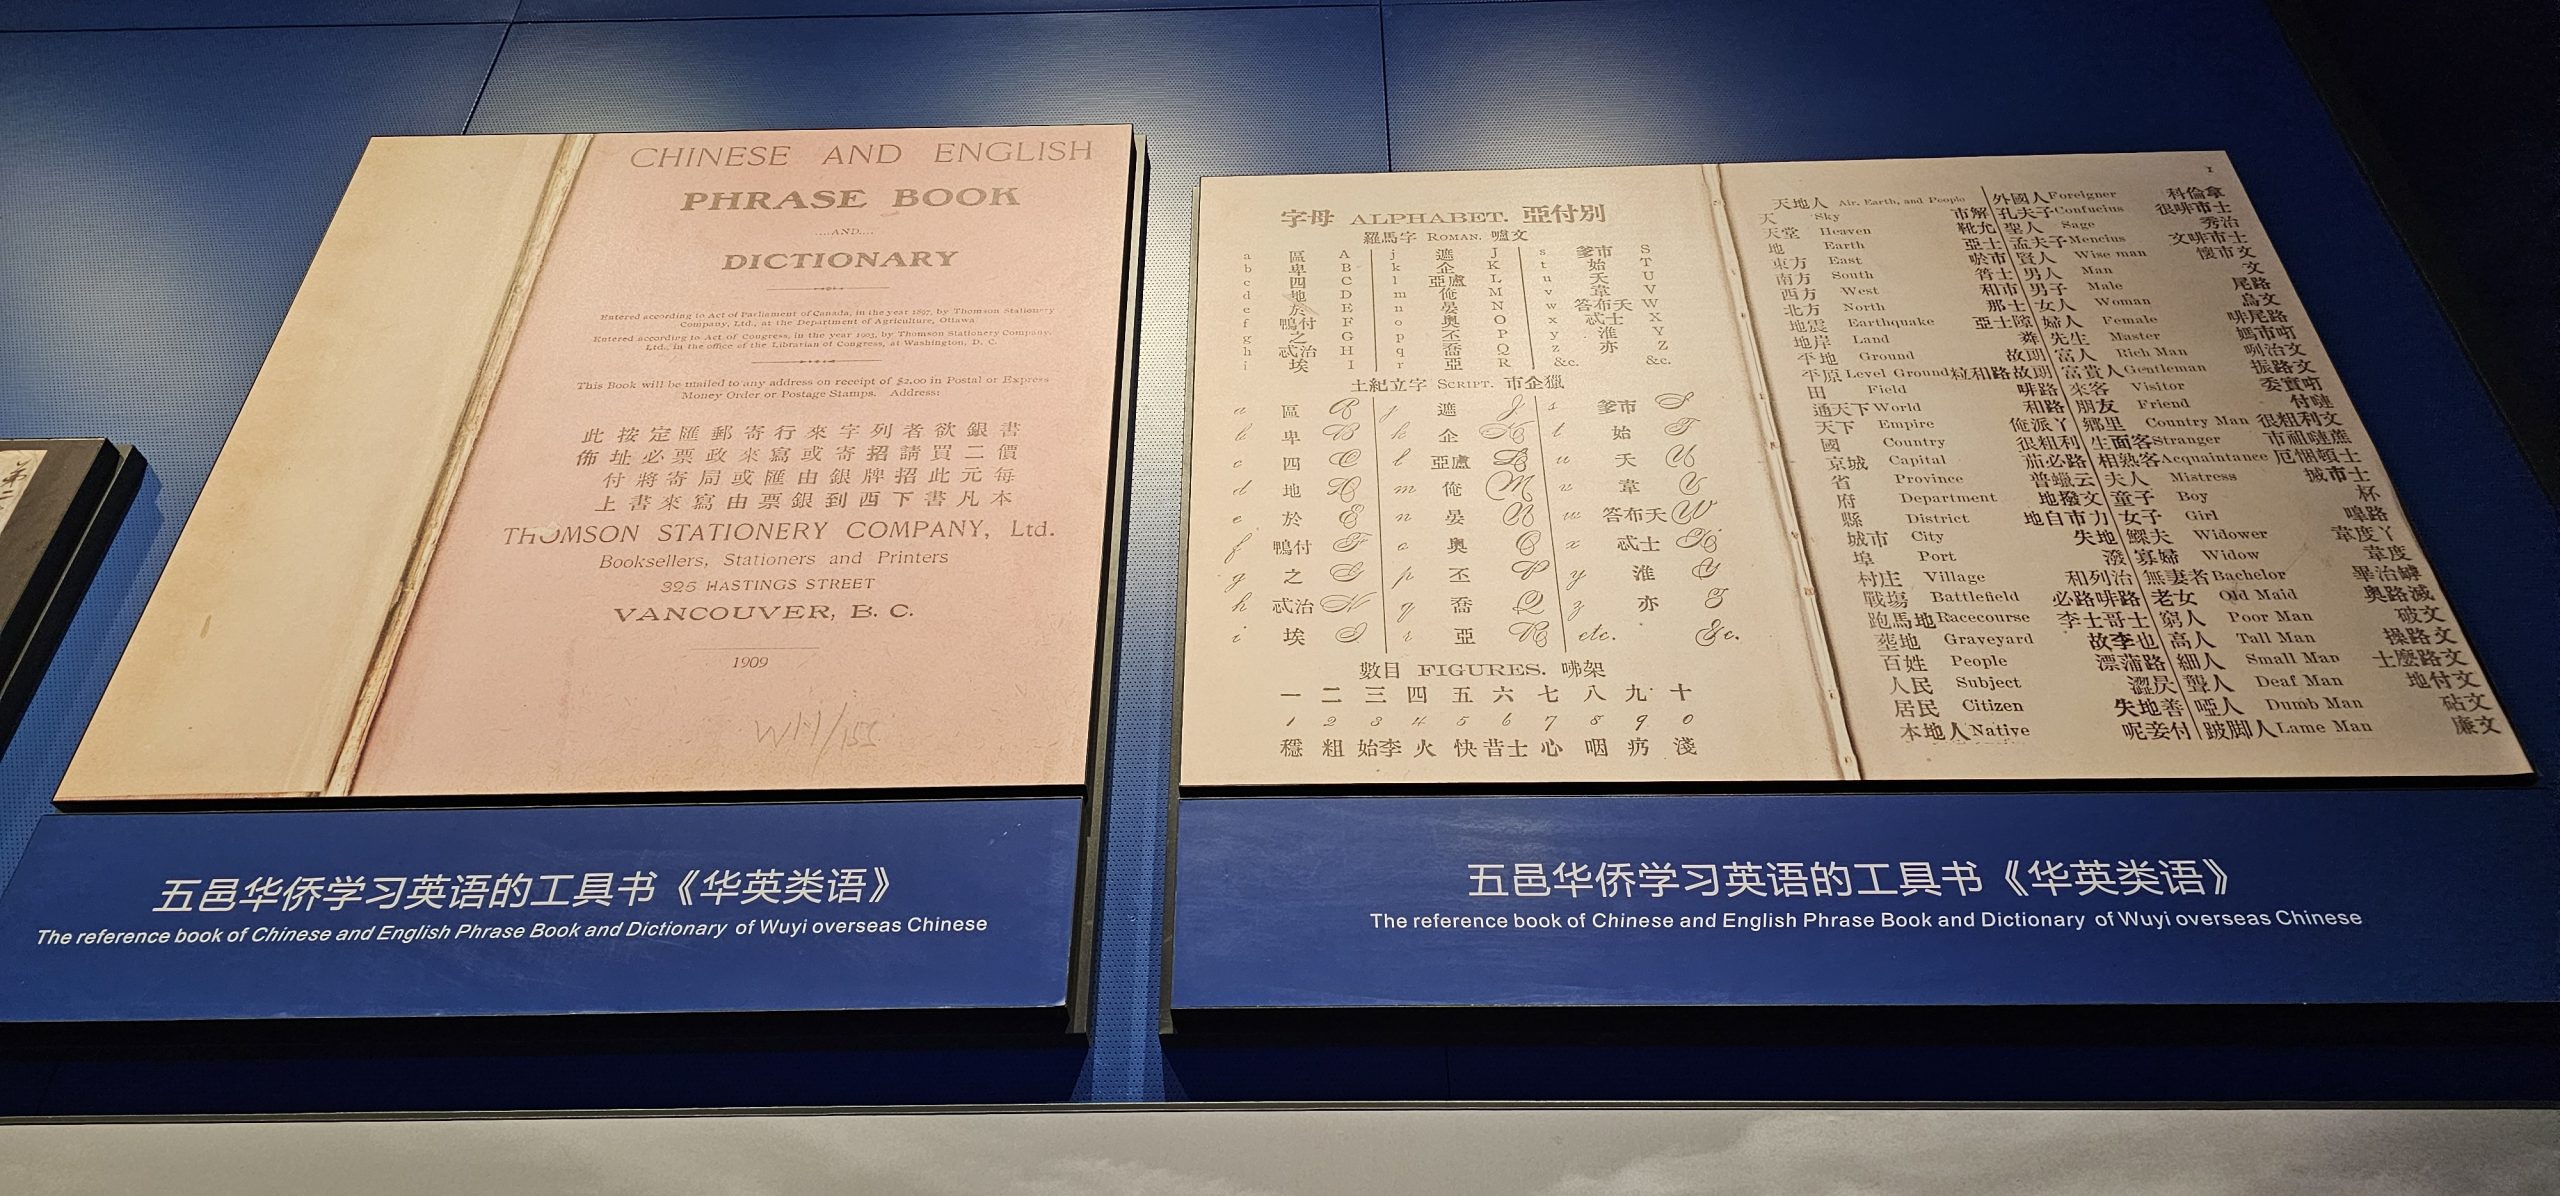 CHINESE AND ENGLISH
PHRASE BOOK
....AND....
DICTIONARY
Entered according to Act of Parliament of Canada, in the year 1897, by Thomson Stationery
Company, Ltd., at the Department of Agriculture, Ottawa
Entered according to Act of Congress, in the year 1903, by Thomson Stationery Company,
Ltd., in the office of the Librarian of Congress, at Washington, D. C.
This Book will be mailed to any address on receipt of $2.00 in Postal or Express
Money Order or Postage Stamps. Address:
此按定匯郵寄行來字列者欲銀書
佈址必票政來寫或寄招請買二價
付將寄局或匯由銀牌招此元每
上書來寫由票銀到西下書凡本
THOMSON STATIONERY COMPANY, Ltd.
Booksellers, Stationers and Printers
325 HASTINGS STREET
VANCOUVER, B. C.
1909
WH/155
五邑华侨学习英语的工具书《华英类语》
The reference book of Chinese and English Phrase Book and Dictionary of Wuyi overseas Chinese
字母 ALPHABET. 亞付別
羅馬字 ROMAN. 嚧文
a 區 A j 遮 J s 爹市 S
b 卑 B k 企 K t 始 T
c 四 C l 亞盧 L u 夭 U
d 地 D m 俺 M v 韋 V
e 於 E n 晏 N w 答布夭 W
f 鴨付 F o 奧 O x 忒士 X
g 之 G p 丕 P y 淮 Y
h 忒治 H q 喬 Q z 亦 Z
i 埃 I r 亞 R &c. &c.
土紀立字 SCRIPT. 市企獵
a 區 A j 遮 J s 爹市 S
b 卑 B k 企 K t 始 T
c 四 C l 亞盧 L u 夭 U
d 地 D m 俺 M v 韋 V
e 於 E n 晏 N w 答布夭 W
f 鴨付 F o 奧 O x 忒士 X
g 之 G p 丕 P y 淮 Y
h 忒治 H q 喬 Q z 亦 Z
i 埃 I r 亞 R etc. &c.
數目 FIGURES. 啡架
一 二 三 四 五 六 七 八 九 十
1 2 3 4 5 6 7 8 9 0
穩 粗 始李 火 快 昔士 心 咽 疓 淺
1
天地人 Air, Earth, and People
天 Sky 市解
天堂 Heaven 靴允
地 Earth 亞士
東方 East 於市
南方 South 筲士
西方 West 和市
北方 North 那士
地震 Earthquake 亞士
地岸 Land
平地 Ground 故助
平原 Level Ground 粒和路故助
田 Field 啡路
通天下 World 和路
天下 Empire 俺派丫
國 Country 很粗利
京城 Capital 茄必路
省 Province 普蠟云
府 Department 地撥文
縣 District 地自市力
城市 City 失地
埠 Port 潑
村庄 Village 和列治
戰場 Battlefield 必路啡路
跑馬地 Racecourse 李士哥士
墳地 Graveyard 故李也
百姓 People 漂蒲路
人民 Subject
居民 Citizen 失地善
本地人 Native 呢妾付
外國人 Foreigner 科倫拿
孔夫子 Confucius 很啡市士
聖人 Sage 秀治
孟夫子 Mencius 文啡市士
賢人 Wise man 懷市文
男人 Man 文
男子 Male 尾路
女人 Woman 烏文
婦人 Female 啡尾路
先生 Master 媽市打
富人 Rich Man 咧治文
富貴人 Gentleman 振路文
來客 Visitor
朋友 Friend 付嗹
鄉里 Country Man 很粗利文
生面客 Stranger
相熟客 Acquaintance
夫人 Mistress
童子 Boy 杯
女子 Girl
鰥夫 Widower 韋度丫
寡婦 Widow 韋度
無妻者 Bachelor
老女 Old Maid 奧路滅
窮人 Poor Man 破文
高人 Tall Man 操路文
細人 Small Man 士麼路文
聾人 Deaf Man 地付文
啞人 Dumb Man 砧文
跛脚人 Lame Man 廉文
五邑华侨学习英语的工具书《华英类语》
The reference book of Chinese and English Phrase Book and Dictionary of Wuyi overseas Chinese